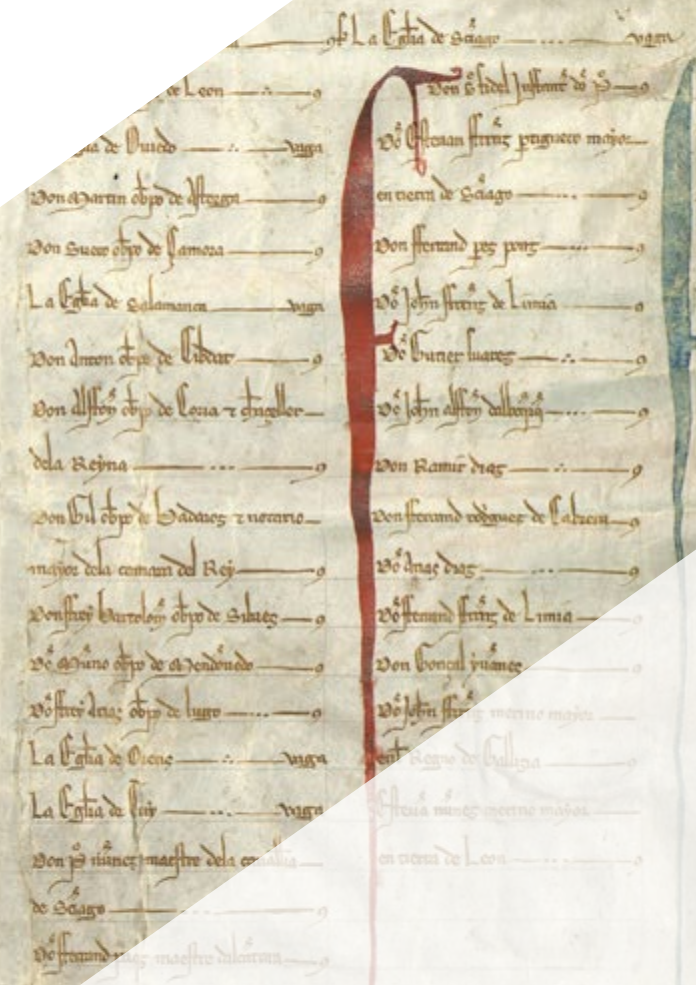 La Eglia de Sciago vaga
de Leon
de Oviedo vaga
Don Martin obpo de Astorga
Don Suero obpo de Çamora
La Eglia de Salamanca vaga
Don Anton obpo de Cibdat
Don Alffon obpo de Coria ⁊ chnceller
dela Reyna
Don Gil obpo de Badaioz ⁊ notario
mayor dela camara del Rey
Don ffrey Bartolom obpo de Silues
Do Muno obpo de Mendonedo
Do ffrey Arias obpo de lugo
La Eglia de Orens vaga
La Eglia de Tuy vaga
Don P nunez maestre dela caualłia
de Sciago
Do fferrand maestre dalcantara
Don S fidel Inffant do P
Do Esteuan ffrrz ptiguero mayor
en tierra de Sciago
Don fferrand perz ponz
Do Johñ ffrrz de Limia
Do Gutier suarez
Do Johñ alffon dalboqrq
Don Ramir diaz
Don fferrand rodguez de Cabrera
Do Arias diaz
Do fferrand ffrrz de Limia
Don Gonçal yuanes
Do Johñ ffrrz merino mayor
enl Regno de Gallizia
Esteuā nunez merino mayor
en tierra de Leon